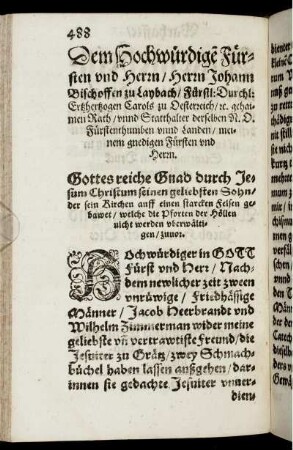 488
Dem Hochwürdigē Für-
sten vnd Herrn / Herrn Johann
Bischoffen zu Laybach / Fürstl: Durchl:
Ertzhertzogen Carols zu Oesterreich / ꝛc. gehai-
men Rath / vnnd Statthalter derselben N. O.
Fürstenthumben vnnd Landen / mei-
nem gnedigen Fürsten vnd
Herrn.
Gottes reiche Gnad durch Je-
sum Christum seinen geliebsten Sohn /
der sein Kirchen auff einen starcken Felsen ge-
bawet / welche die Pforten der Höllen
nicht werden vberwälti-
gen / zuuor.
Hochwürdiger in GOTT
Fürst vnd Herr / Nach-
dem newlicher zeit zween
vnrüwige / Friedhässige
Männer / Jacob Heerbrandt vnd
Wilhelm Zimmerman wider meine
geliebste vñ vertrawtiste Freund / die
Jesuiter zu Grätz / zwey Schmach-
büchel haben lassen außgehen / dar-
innen sie gedachte Jesuiter vnuer-
dien-